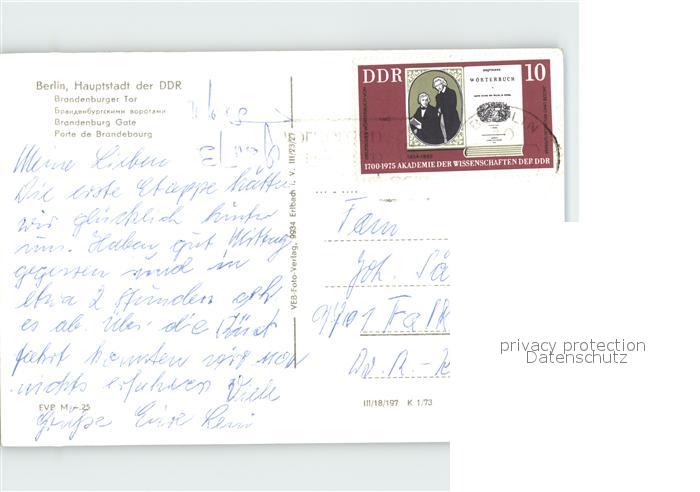 Berlin, Hauptstadt der DDR
Brandenburger Tor
Бранденбургскими воротами
Brandenburg Gate
Porte de Brandebourg
DDR
WÖRTERBUCH
10
1700-1975 AKADEMIE DER WISSENSCHAFTEN DER DDR
BERLIN
Meine Lieben
Die erste Etappe hätten
wir glücklich hinter
uns. Haben gut Mittag
gegessen und in
etwa 2 Stunden geht
es ab. Über die
fahrt konnten wir noch
nichts erfahren Viele
Grüße Eure
VEB Foto-Verlag, 9934 Erlbach i. V. III/23/27
Fam
Joh. Sä
9701 Falk
Dr. R.-
EVP M -,25
III/18/197 K 1/73
privacy protection
Datenschutz